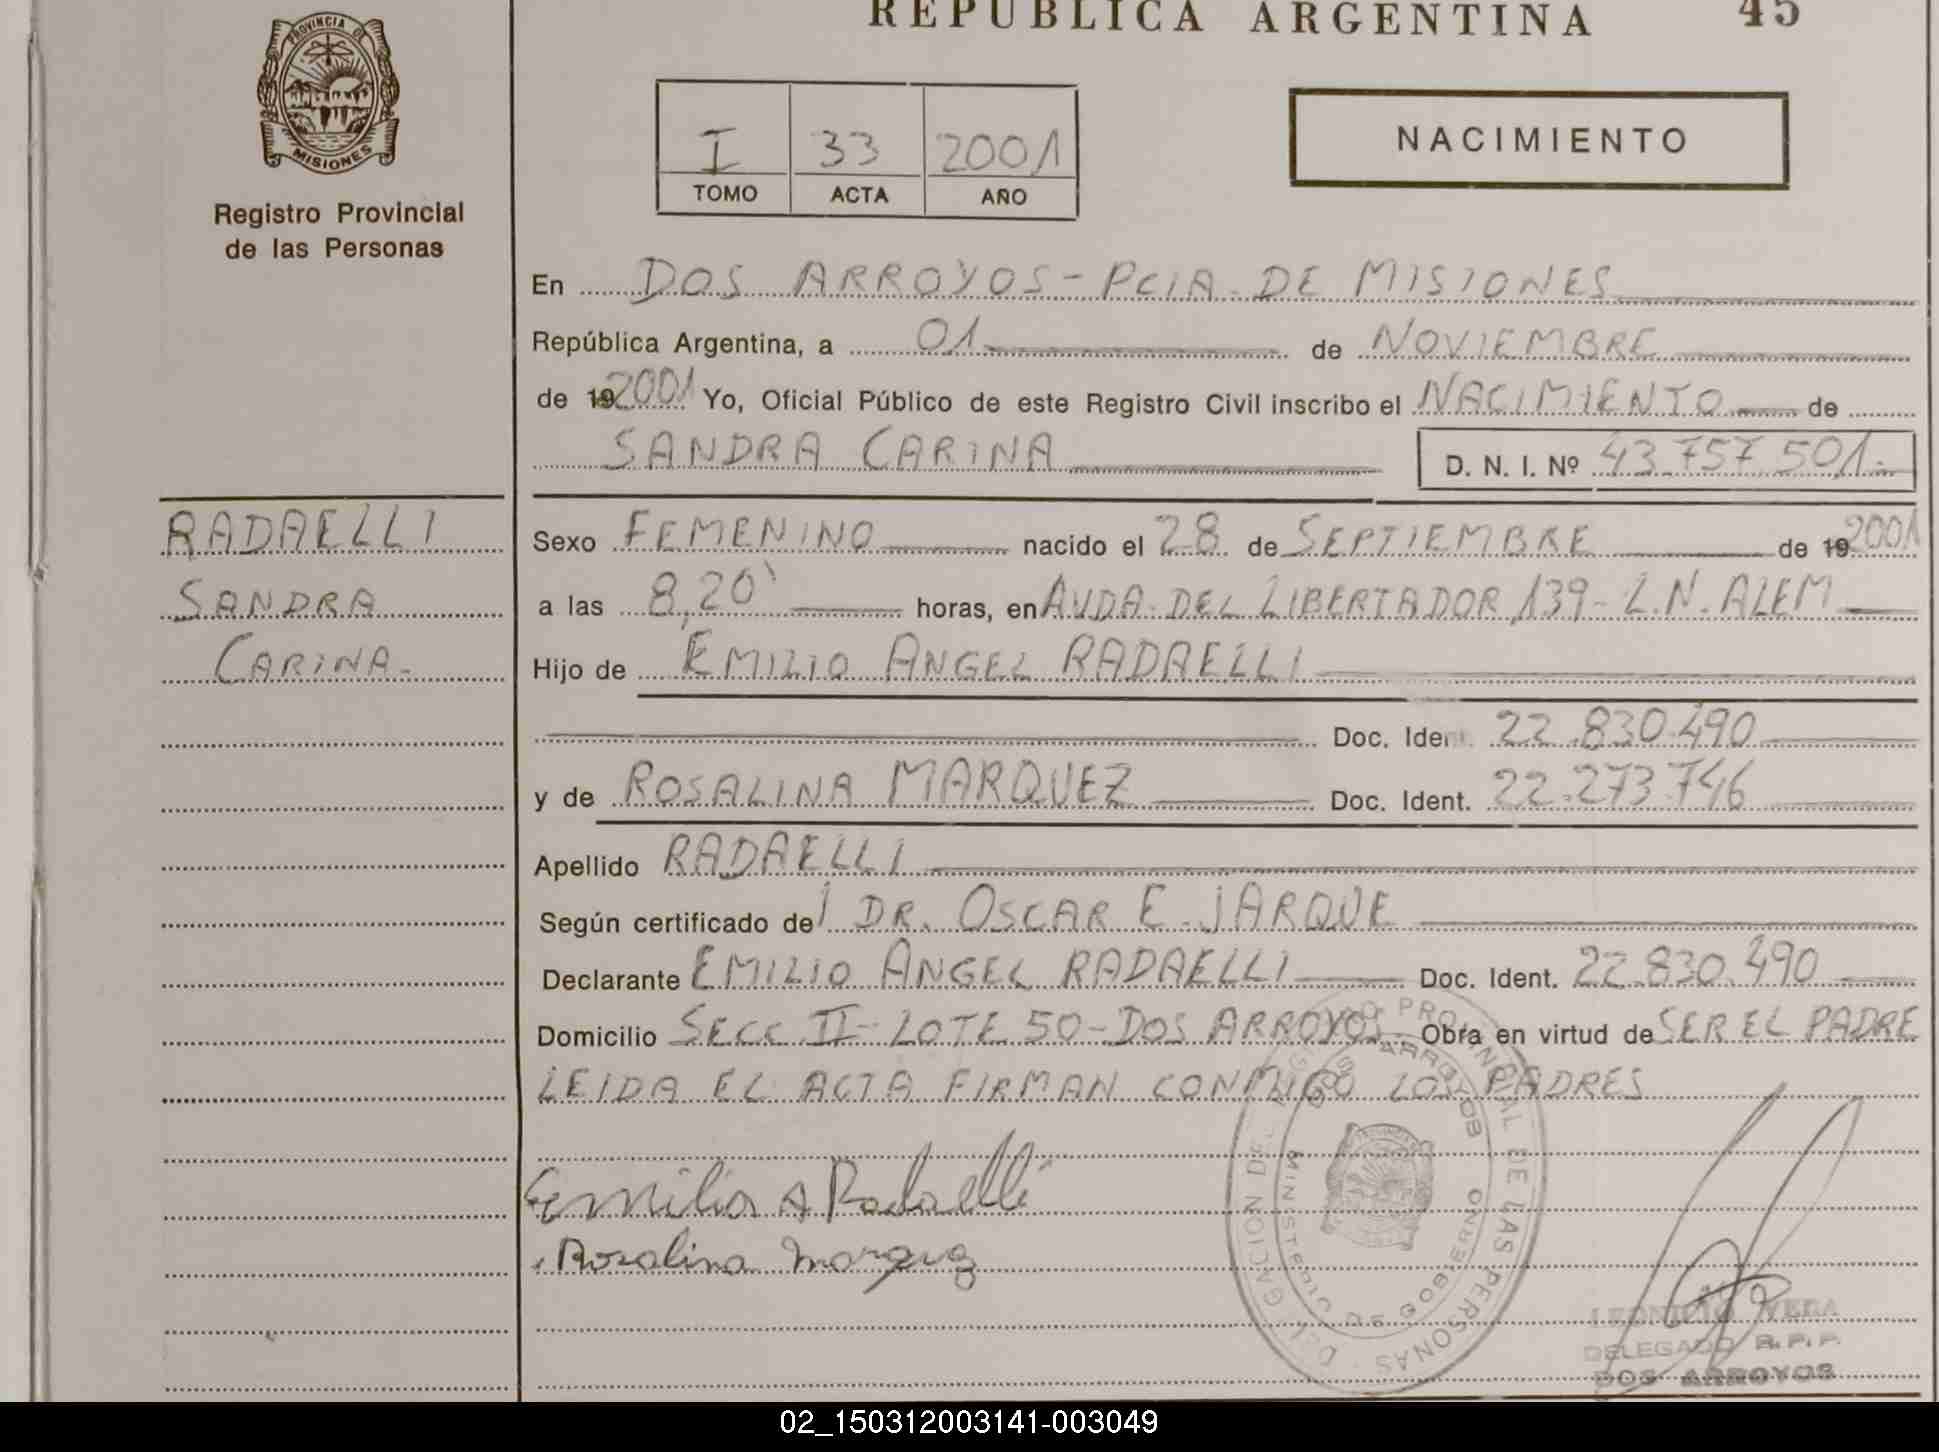 REPUBLICA ARGENTINA 45
PROVINCIA DE
MISIONES
Registro Provincial
de las Personas
I 33 2001
TOMO ACTA AÑO
NACIMIENTO
En DOS ARROYOS - PCIA. DE MISIONES
República Argentina, a 01 de NOVIEMBRE
de 19 2001 Yo, Oficial Público de este Registro Civil inscribo el NACIMIENTO de
SANDRA CARINA D. N. I. Nº 43.757.501.-
RADAELLI
SANDRA
CARINA.-
Sexo FEMENINO nacido el 28 de SEPTIEMBRE de 19 2001
a las 8,20' horas, en AVDA. DEL LIBERTADOR 139 - L.N. ALEM
Hijo de EMILIO ANGEL RADAELLI
Doc. Ident. 22.830.490
y de ROSALINA MARQUEZ Doc. Ident. 22.273.746
Apellido RADAELLI
Según certificado de DR. OSCAR E. JARQUE
Declarante EMILIO ANGEL RADAELLI Doc. Ident. 22.830.490
Domicilio SECC. II - LOTE 50 - DOS ARROYOS Obra en virtud de SER EL PADRE
LEIDA EL ACTA FIRMAN CONMIGO LOS PADRES
Emilio A Radaelli
Rosalina Marquez
DELEGACION DEL REGISTRO PROVINCIAL DE LAS PERSONAS
DOS ARROYOS
MINISTERIO DE GOBIERNO
VERA
DELEGADO R.P.P.
DOS ARROYOS
02_150312003141-003049